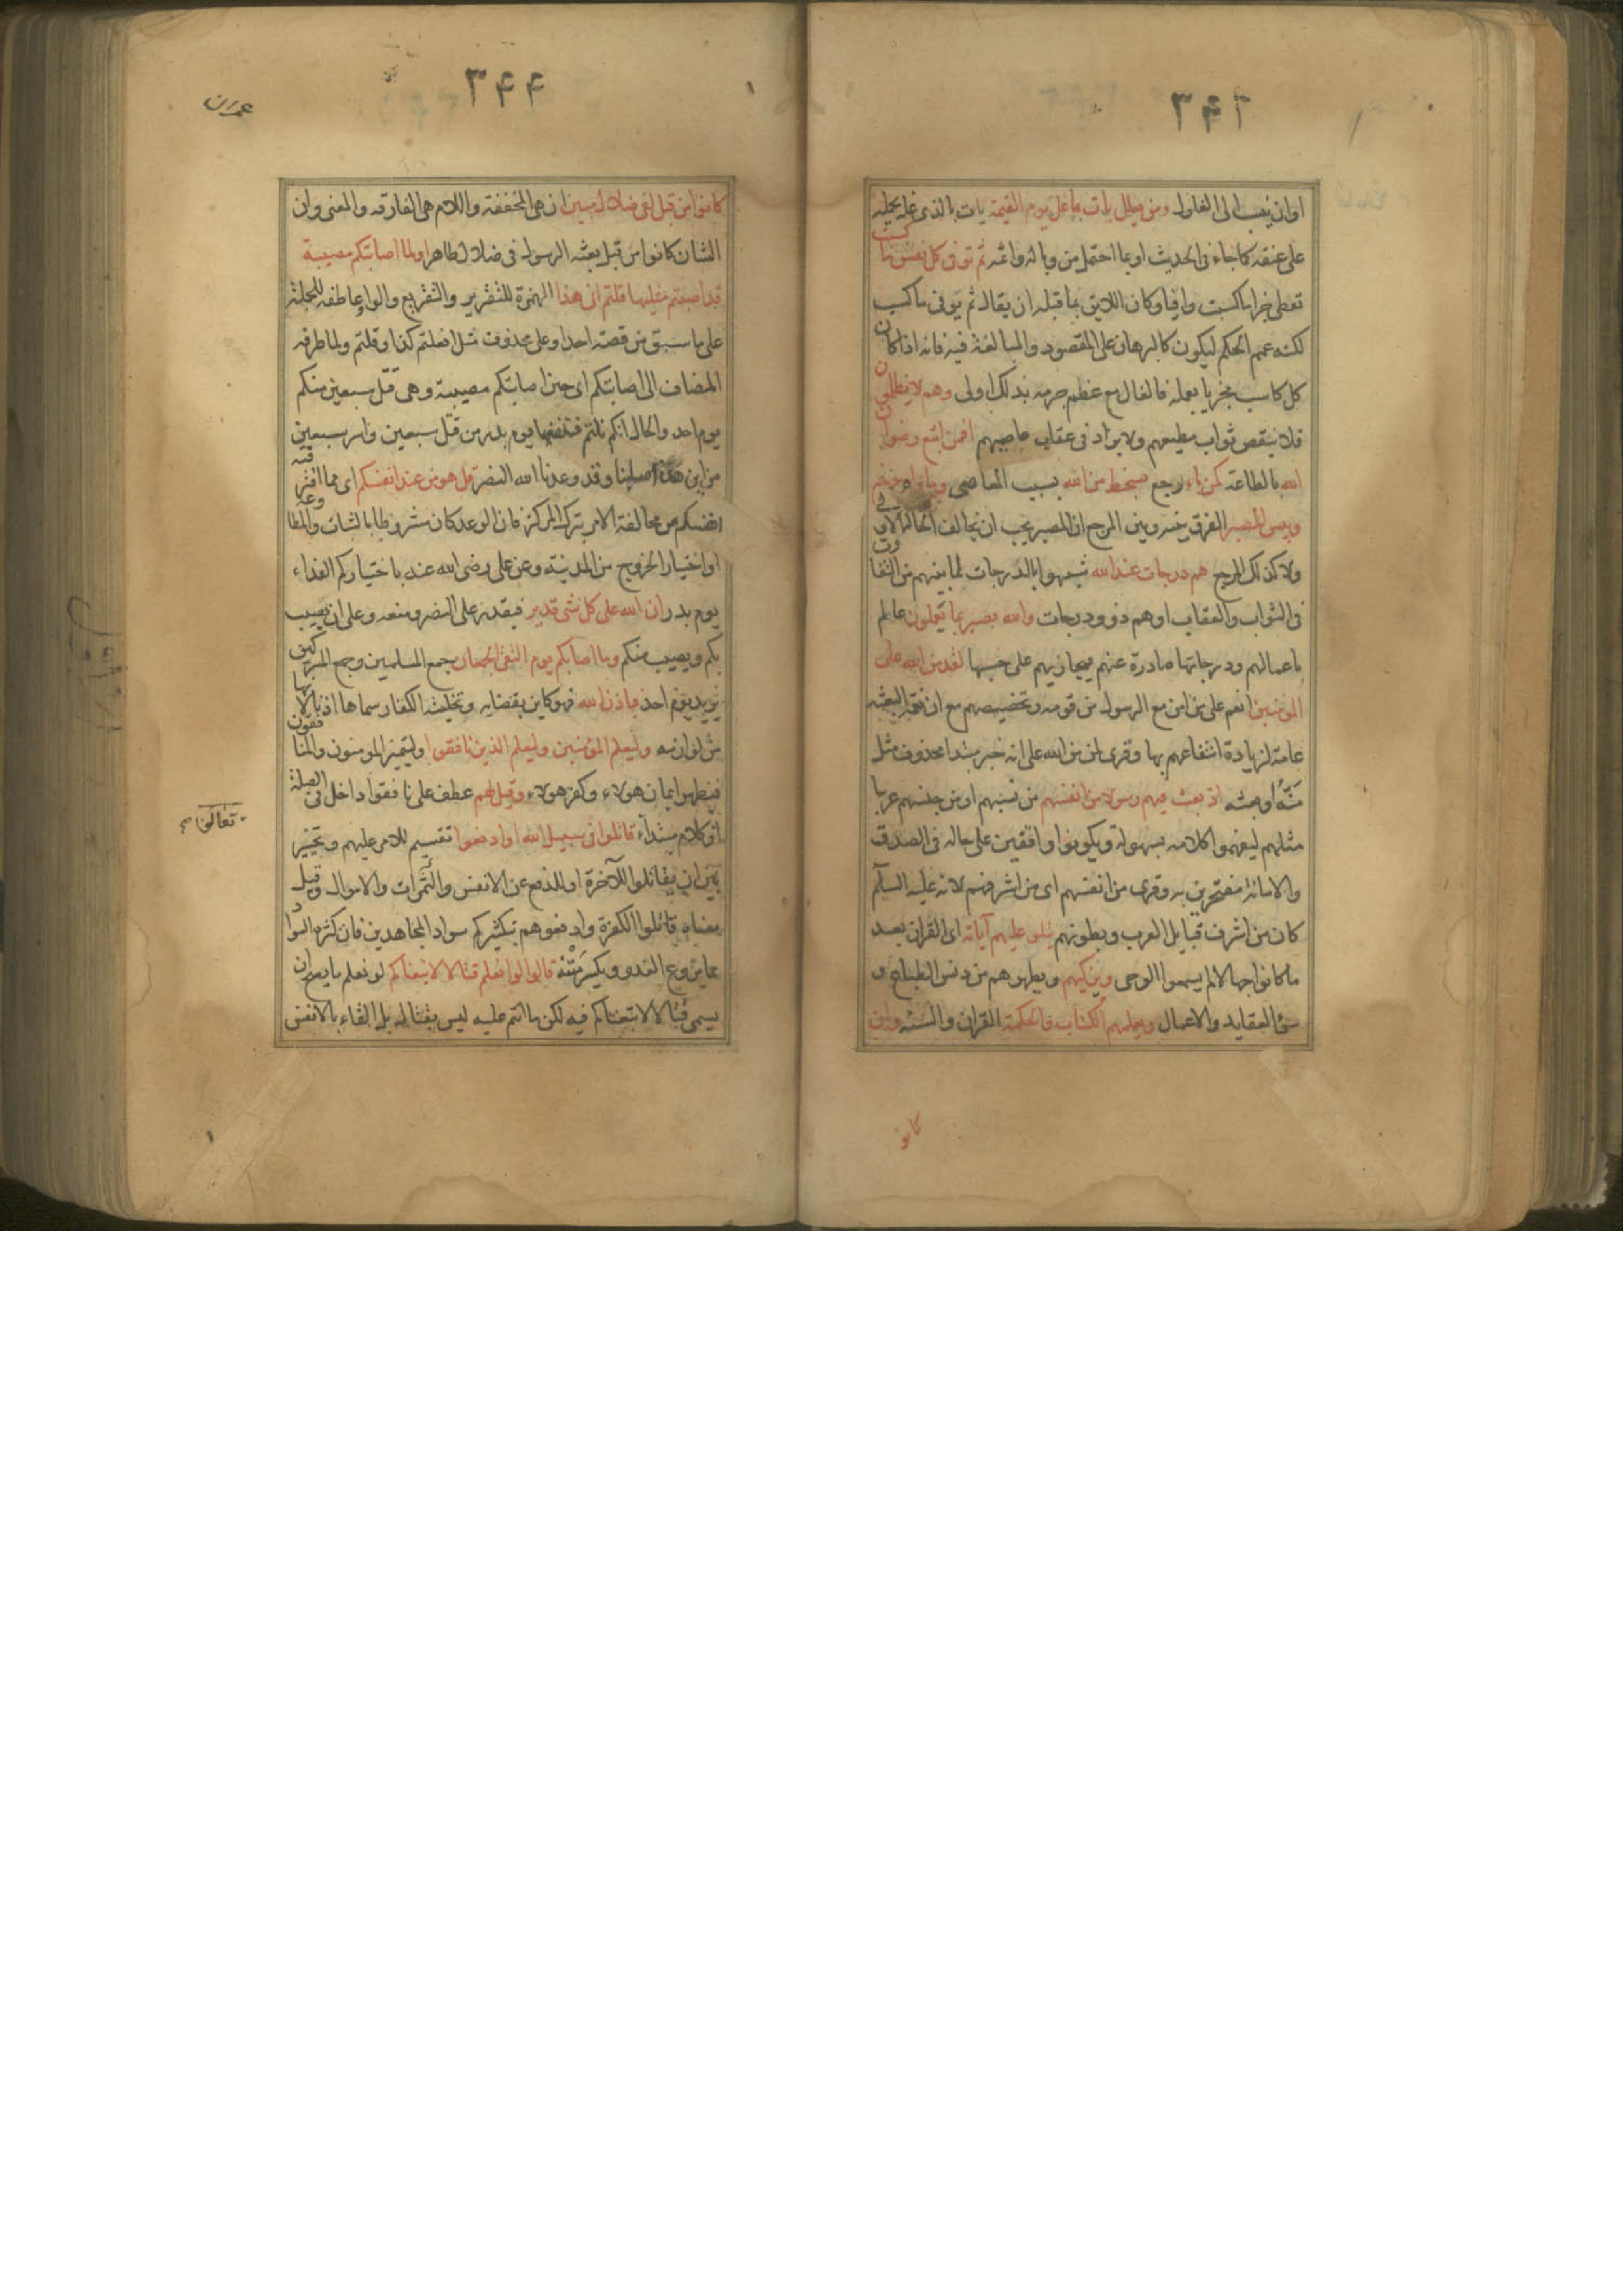 ۳۴۳
او ان ينسب الى الغلول ومن يغلل يات بما غل يوم القيمة يات بالذى غله يحمله
على عنقه كما جاء فى الحديث او بما احتمل من وباله واثمه ثم توفى كل نفس ما كسبت
تعطى جزا ما كسبت وافيا وكان اللايق بما قبله ان يقال ثم يوفى ما كسب
لكنه عمم الحكم ليكون كالبرهان على المقصود والمبالغة فيه فانه اذا كان
كل كاسب مجزيا بعمله فالغال مع عظم جرمه بذلك اولى وهم لا يظلمون
فلا ينقص ثواب مطيعهم ولا يزاد فى عقاب عاصيهم افمن اتبع رضوان
الله بالطاعة كمن باء رجع بسخط من الله بسبب المعاصى وماواه جهنم
وبيس المصير الفرق بينه وبين المرجع ان المصير يجب ان يخالف الحالة الاولى
ولا كذلك المرجع هم درجات عند الله شبهوا بالدرجات لما بينهم من التفاوت
فى الثواب والعقاب او هم ذوو درجات والله بصير بما يعملون عالم
باعمالهم ودرجاتها صادرة عنهم فيجازيهم على حسبها لقد من الله على
المؤمنين انعم على من امن مع الرسول من قومه وتخصيصهم مع ان نعمة البعثه
عامة لزيادة انتفاعهم بها وقرى لمن من الله على انه خبر مبتدا محذوف مثل
منّه او بعثه اذ بعث فيهم رسولا من انفسهم من نسبهم او من جنسهم عربيا
مثلهم ليفهموا كلامه بسهولة ويكونوا واقفين على حاله فى الصدق
والامانة مفتخرين به وقرى من انفسهم اى من اشرفهم لانه عليه السلام
كان من اشرف قبايل العرب وبطونهم يتلو عليهم آياته اى القران بعد
ما كانوا جهالا لم يسمعوا الوحى ويزكيهم ويطهرهم من دنس الطباع و
سوء العقايد والاعمال ويعلمهم الكتاب والحكمة القران والسنه وان
كانو
۳۴۴
عمران
كانوا من قبل لفى ضلال مبين ان هى المخففة واللام هى الفارقه والمعنى وان
الشان كانوا من قبل بعثه الرسول فى ضلال ظاهر اولما اصابتكم مصيبة
قد اصبتم مثليها قلتم انى هذا الهمزة للتقرير والتقريع والواو عاطفه للجملة
على ما سبق من قصة احد او على محذوف مثل افعلتم كذا وقلتم ولما ظرفه
المضاف الى اصابتكم اى حين اصابتكم مصيبة وهى قتل سبعين منكم
يوم احد والحال انكم نلتم ضعفها يوم بدر من قتل سبعين واسر سبعين
من اين هذا اصابنا وقد وعدنا الله النصر قل هو من عند انفسكم اى مما اقترفته
انفسكم من مخالفة الامر بترك المركز فان الوعد كان مشروطا بالثبات والمطاوعة
او اختيار الخروج من المدينة وعن على رضى الله عنه باختياركم الفداء
يوم بدر ان الله على كل شى قدير فيقدر على النصر ومنعه وعلى ان يصيب
بكم ويصيب منكم وما اصابكم يوم التقى الجمعان جمع المسلمين وجمع المشركين
يريد يوم احد فباذن الله فهو كاين بقضايه وتخليته الكفار سماها اذنا لانها
من لوازمه وليعلم المؤمنين وليعلم الذين نافقوا وليتميز المومنون والمنافقون
فيظهر ايمان هولاء وكفر هولاء وقيل لهم عطف على نافقوا داخل فى الصلة
او كلام مبتداء قاتلوا فى سبيل الله او ادفعوا تقسيم للامر عليهم وتخيير
بين ان يقاتلوا للآخرة او للدفع عن الانفس والثمرات والاموال وقيل
معناه قاتلوا الكفرة وادفعوهم بتكثيركم سواد المجاهدين فان كثرة السواد
مما يروع العدو ويكسر منه قالوا لو نعلم قتالا لاتبعناكم لو نعلم ما يصح ان
يسمى قتالا لاتبعناكم فيه لكن ما انتم عليه ليس بقتال بل القاء بالانفس
تعالى